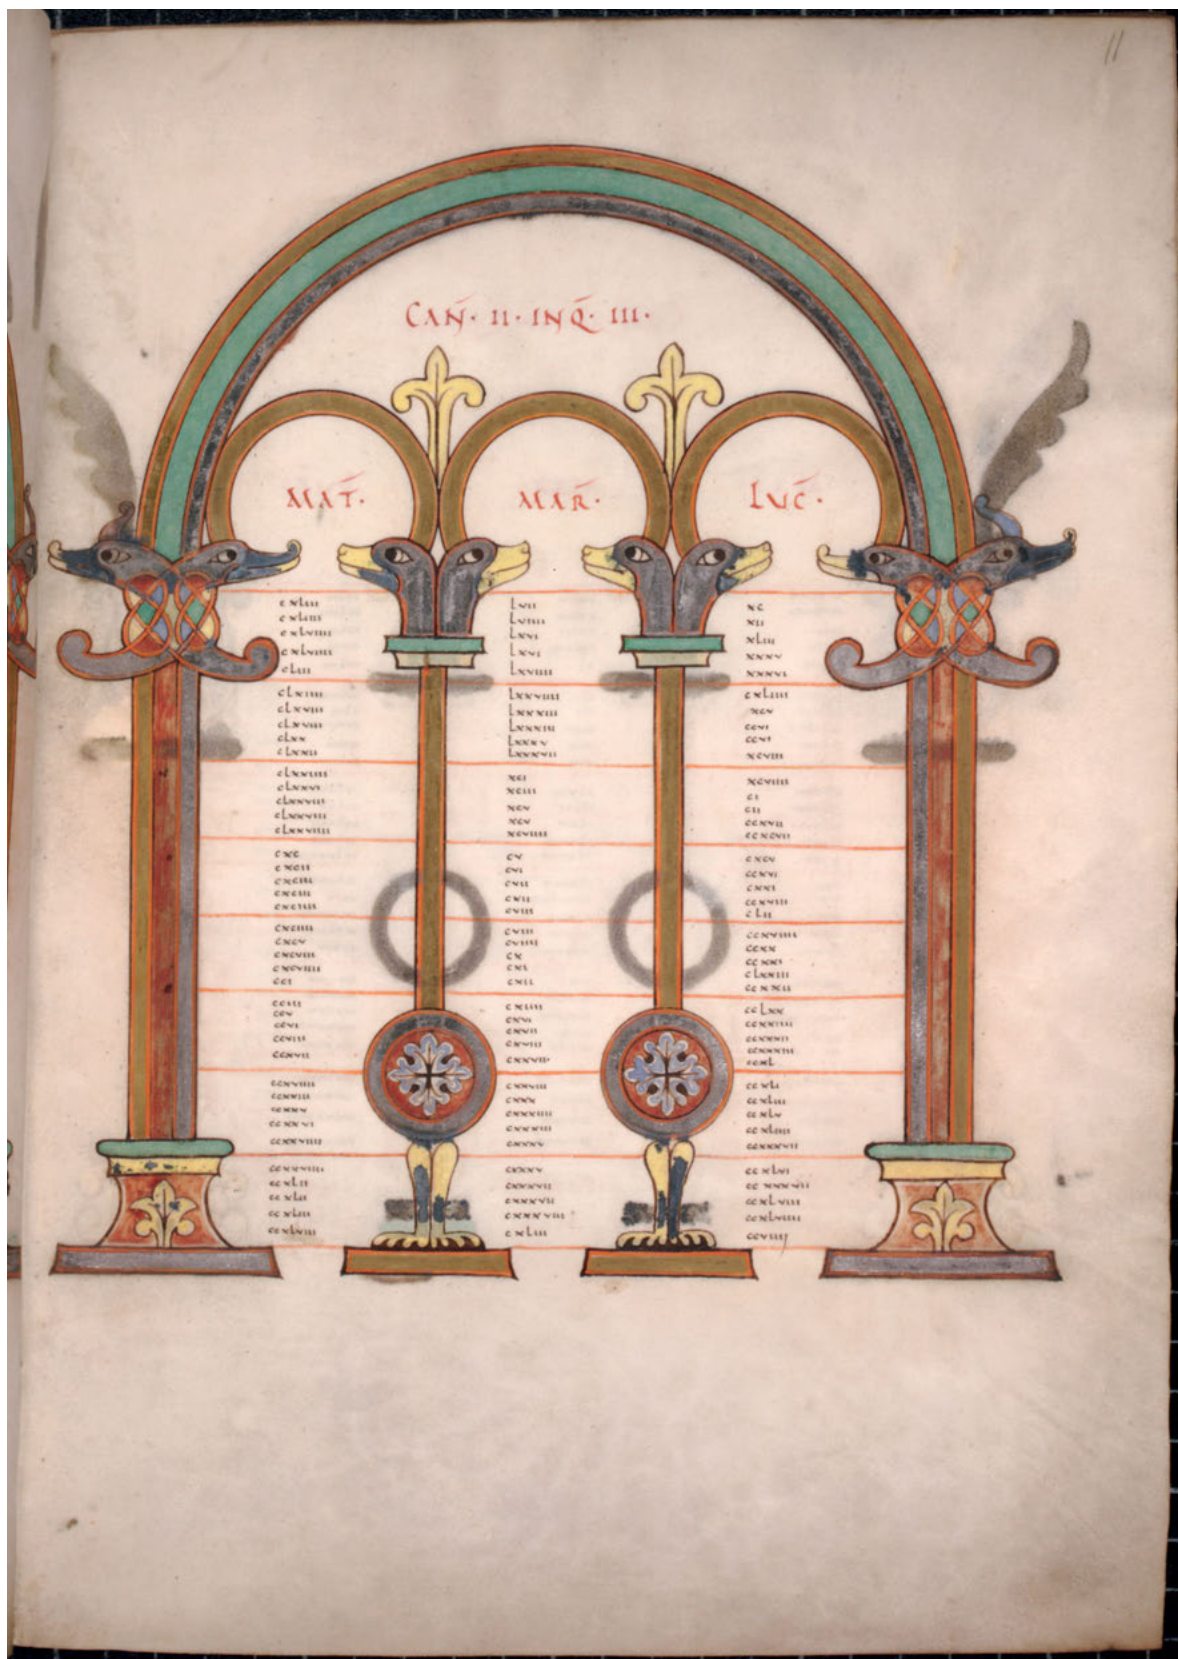 11
CAN̄· II· INQ̄· III·
MAT̄· MAR̄· LUC̄·
cxliii lvii xc
cxliiii lviiii xii
cxlviiii lxvi xliii
cxlviiii lxvi xxxv
cliii lxviiii xxxvi
clxiiii lxxviiii cxliiii
clxviii lxxxiii xcv
clxviii lxxxiii ccvi
clxx lxxxv ccvi
clxxii lxxxvii xcviii
clxxiiii xci xcviiii
clxxvi xciii ci
clxxviii xcv cii
clxxviii xcv ccxvii
clxxviiii xcviiii ccxcvii
cxc cv cxcv
cxcii cvi ccxvi
cxciii cvii cxxi
cxciii cxii ccxviii
cxciiii cviii clii
cxciiii cviii ccxviiii
cxcv cviiii ccxx
cxcviii cx ccxxi
cxcviiii cxi clxxiii
cci cxii ccxxii
cciii cxiiii cclxx
ccv cxvi ccxxiiii
ccvi cxvii ccxxxii
ccviii cxviii ccxxxiii
ccxvii cxxvii ccxl
ccxviiii cxxviii ccxli
ccxxiii cxxx ccxliii
ccxxv cxxxiiii ccxlv
ccxxvi cxxxiii ccxliiii
ccxxviiii cxxxv ccxxxvii
ccxxviiii cxxxv ccxlvi
ccxlii cxxxvii ccxxxvii
ccxlii cxxxvii ccxlviii
ccxliii cxxxviii ccxlviiii
ccxlviii cxliii ccviiii